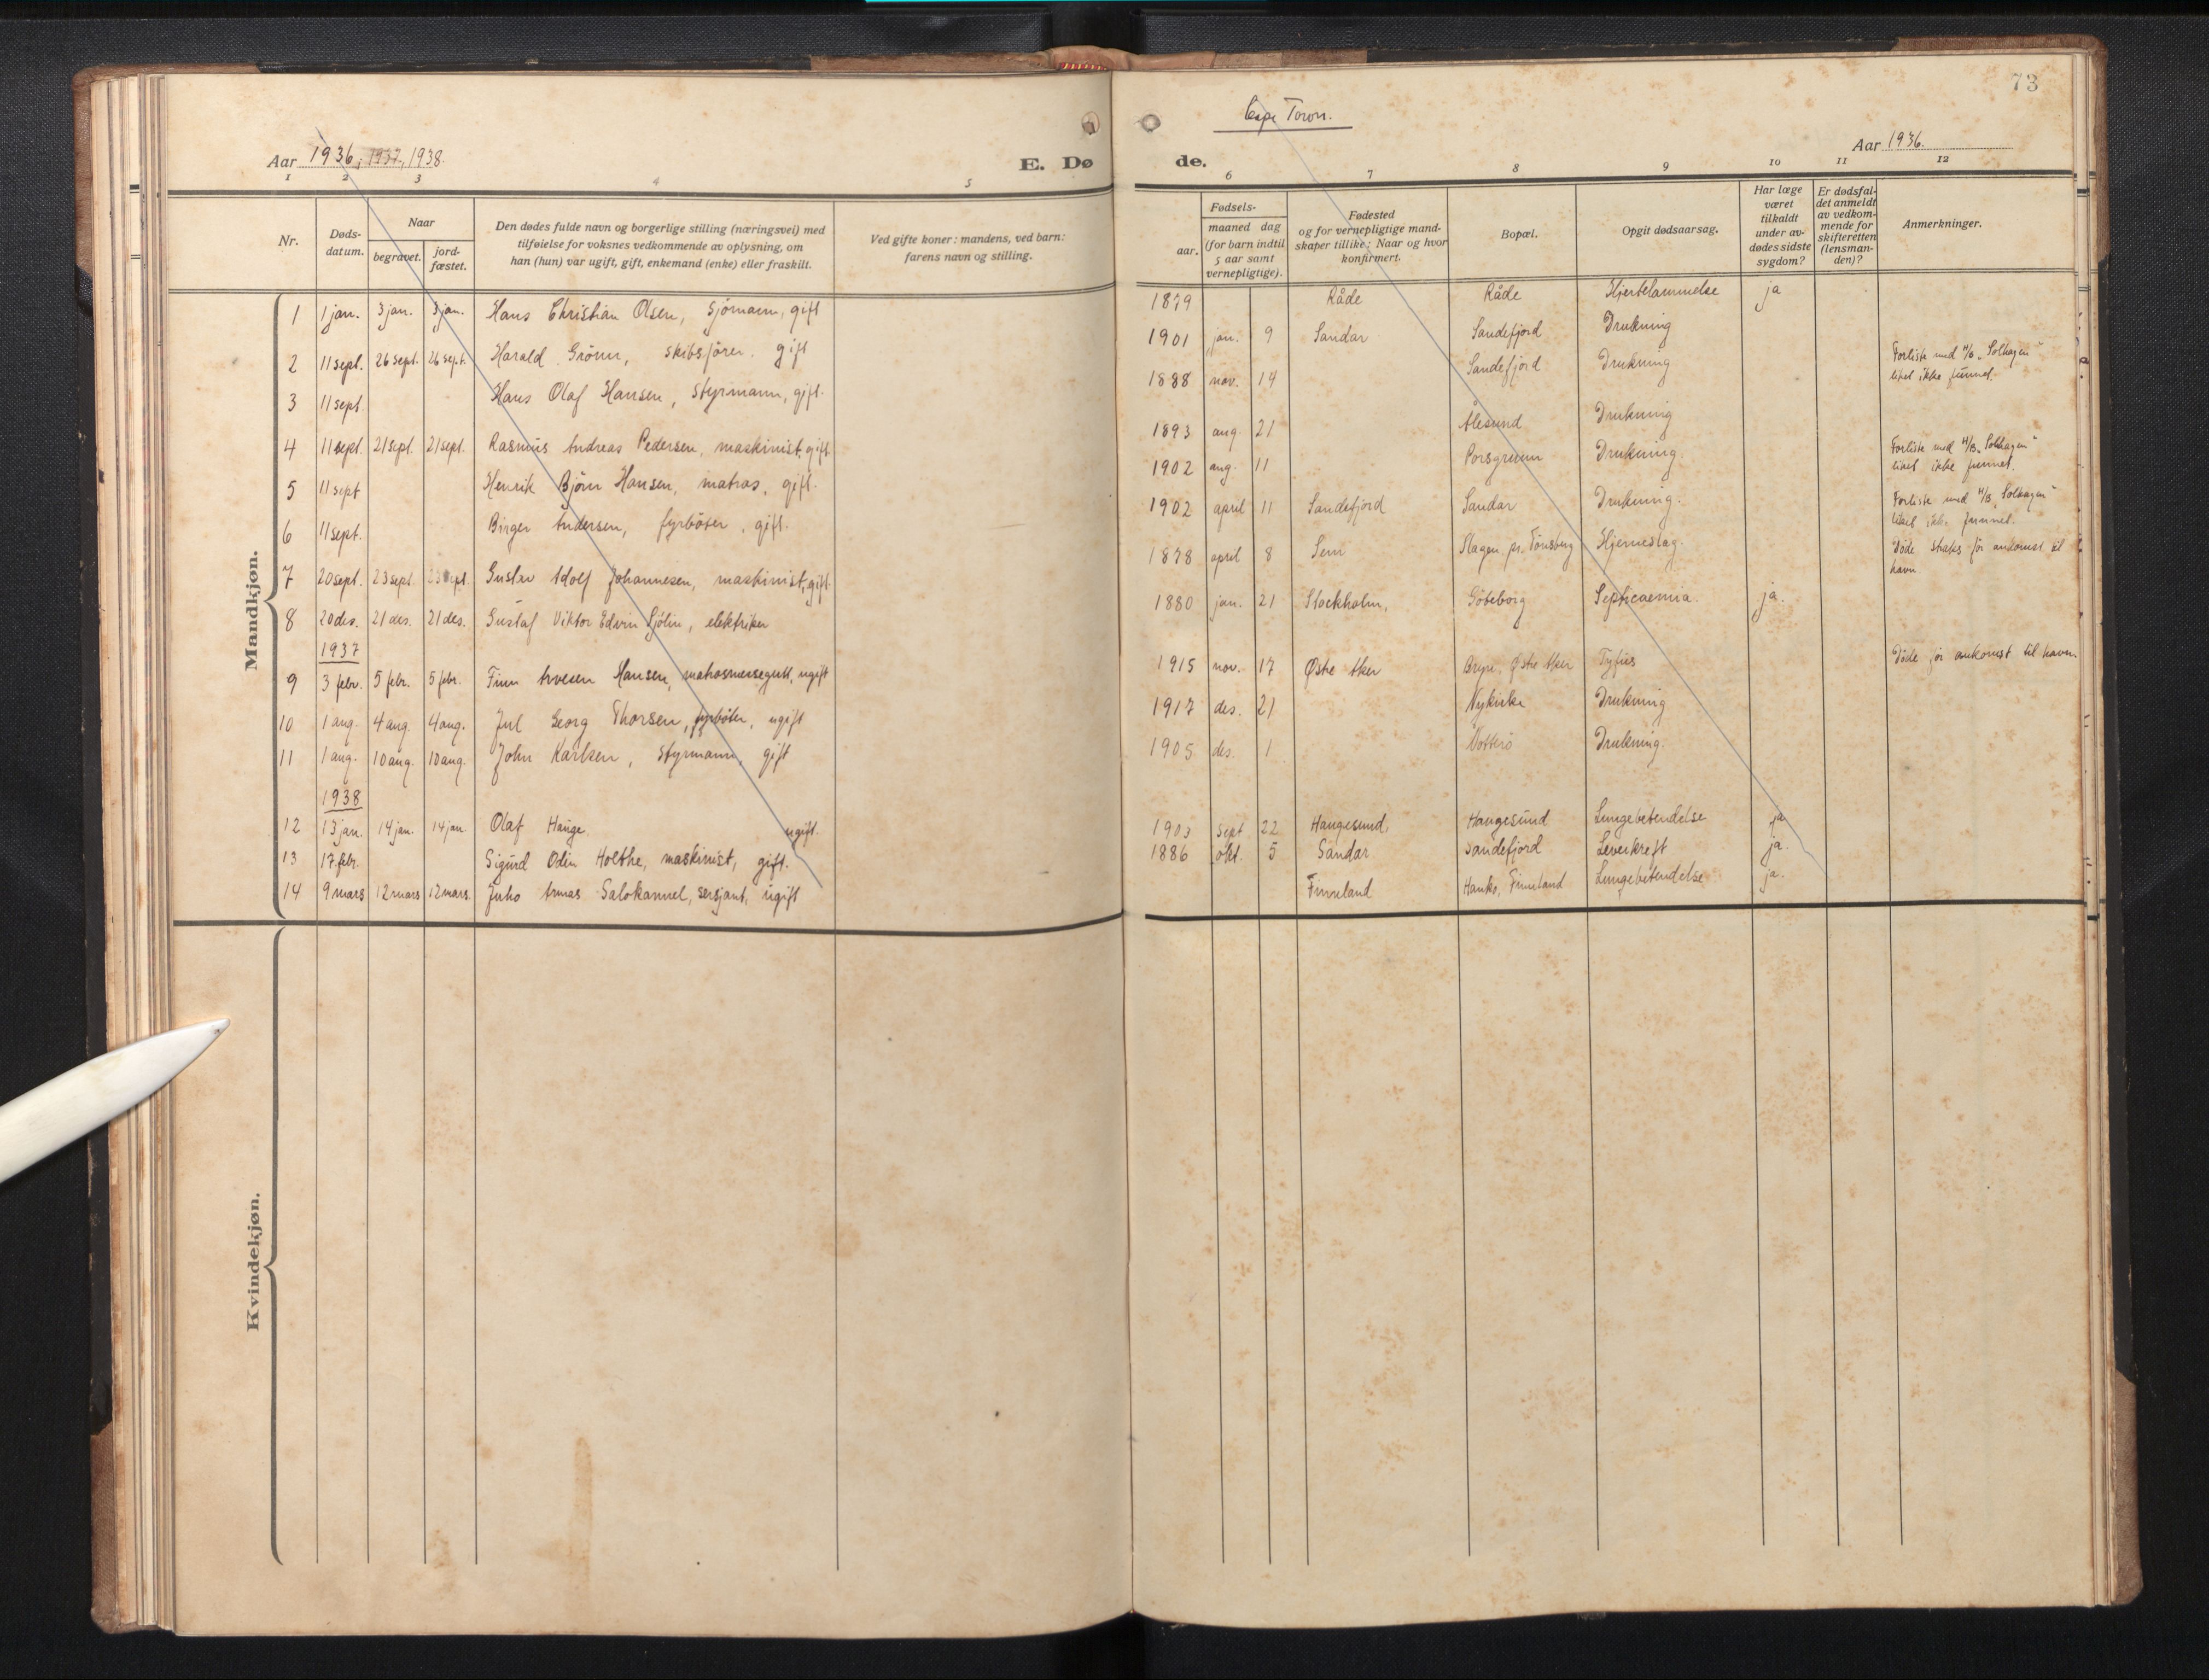 73
Cape Town.
Aar 1936, 1937, 1938.
E. Døde.
Aar 1936.
1 2 3 4 5 6 7 8 9 10 11 12
Nr.
Døds-
datum.
Naar
begravet.
jord-
fæstet.
Den dødes fulde navn og borgerlige stilling (næringsvei) med
tilføielse for voksnes vedkommende av oplysning, om
han (hun) var ugift, gift, enkemand (enke) eller fraskilt.
Ved gifte koner: mandens, ved barn:
farens navn og stilling.
Fødsels-
aar.
maaned dag
(for barn indtil
5 aar samt
vernepligtige).
Fødested
og for vernepligtige mand-
skaper tillike: Naar og hvor
konfirmert.
Bopæl.
Opgit dødsaarsag.
Har læge
været
tilkaldt
under av-
dødes sidste
sygdom?
Er dødsfal-
det anmeldt
av vedkom-
mende for
skifteretten
(lensman-
den)?
Anmerkninger.
Mandkjøn.
1 1 jan. 3 jan. 3 jan. Hans Christian Olsen, sjömann, gift 1879 Råde Råde Hjertelammelse ja
2 11 sept. 26 sept. 26 sept. Harald Grönn, skibsförer, gift 1901 jan. 9 Sandar Sandefjord Drukning
3 11 sept. Hans Olaf Hansen, styrmann, gift. 1888 nov. 14 Sandefjord Drukning Forliste med M/B „Solhagen"
liket ikke funnet.
4 11 sept. 21 sept. 21 sept. Rasmus Andreas Pedersen, maskinist, gift. 1893 aug. 21 Ålesund Drukning
5 11 sept Henrik Björn Hansen, matros, gift. 1902 aug. 11 Porsgrunn Drukning. Forliste med M/B „Solhagen"
liket ikke funnet.
6 11 sept. Birger Andersen, fyrböter, gift. 1902 april 11 Sandefjord Sandar Drukning. Forliste med M/B „Solhagen"
liket ikke funnet.
7 20 sept. 23 sept. 23 sept. Gustav Adolf Johannesen, maskinist, gift. 1878 april 8 Sem Slagen pr. Tönsberg Hjerneslag. Döde straks för ankomst til
havn
8 20 des. 21 des. 21 des. Gustaf Viktor Edvin Sjölin, elektriker 1880 jan. 21 Stockholm, Göteborg Septicaemia. ja.
1937
9 3 febr. 5 febr. 5 febr. Finn Arvesen Hansen, matrosmessegutt, ugift 1915 nov. 17 Østre Aker Bryn, Østre Aker Tyfus Döde för ankomst til havn.
10 1 aug. 4 aug. 4 aug. Jul Georg Thorsen, fyrböter, ugift 1917 des. 21 Nykirke Drukning
11 1 aug. 10 aug. 10 aug. John Karlsen, styrmann, gift 1905 des. 1 Nötterö Drukning.
1938
12 13 jan. 14 jan. 14 jan Olaf Hauge ugift. 1903 sept. 22 Haugesund, Haugesund Lungebetendelse ja
13 17. febr. Sigurd Odin Holthe, maskinist, gift. 1886 okt. 5 Sandar Sandefjord Leverkreft ja.
14 9 mars 12 mars 12 mars. Juho Armas Salokannel, sersjant, ugift Finnland Hanko, Finnland Lungebetendelse ja.
Kvindekjøn.